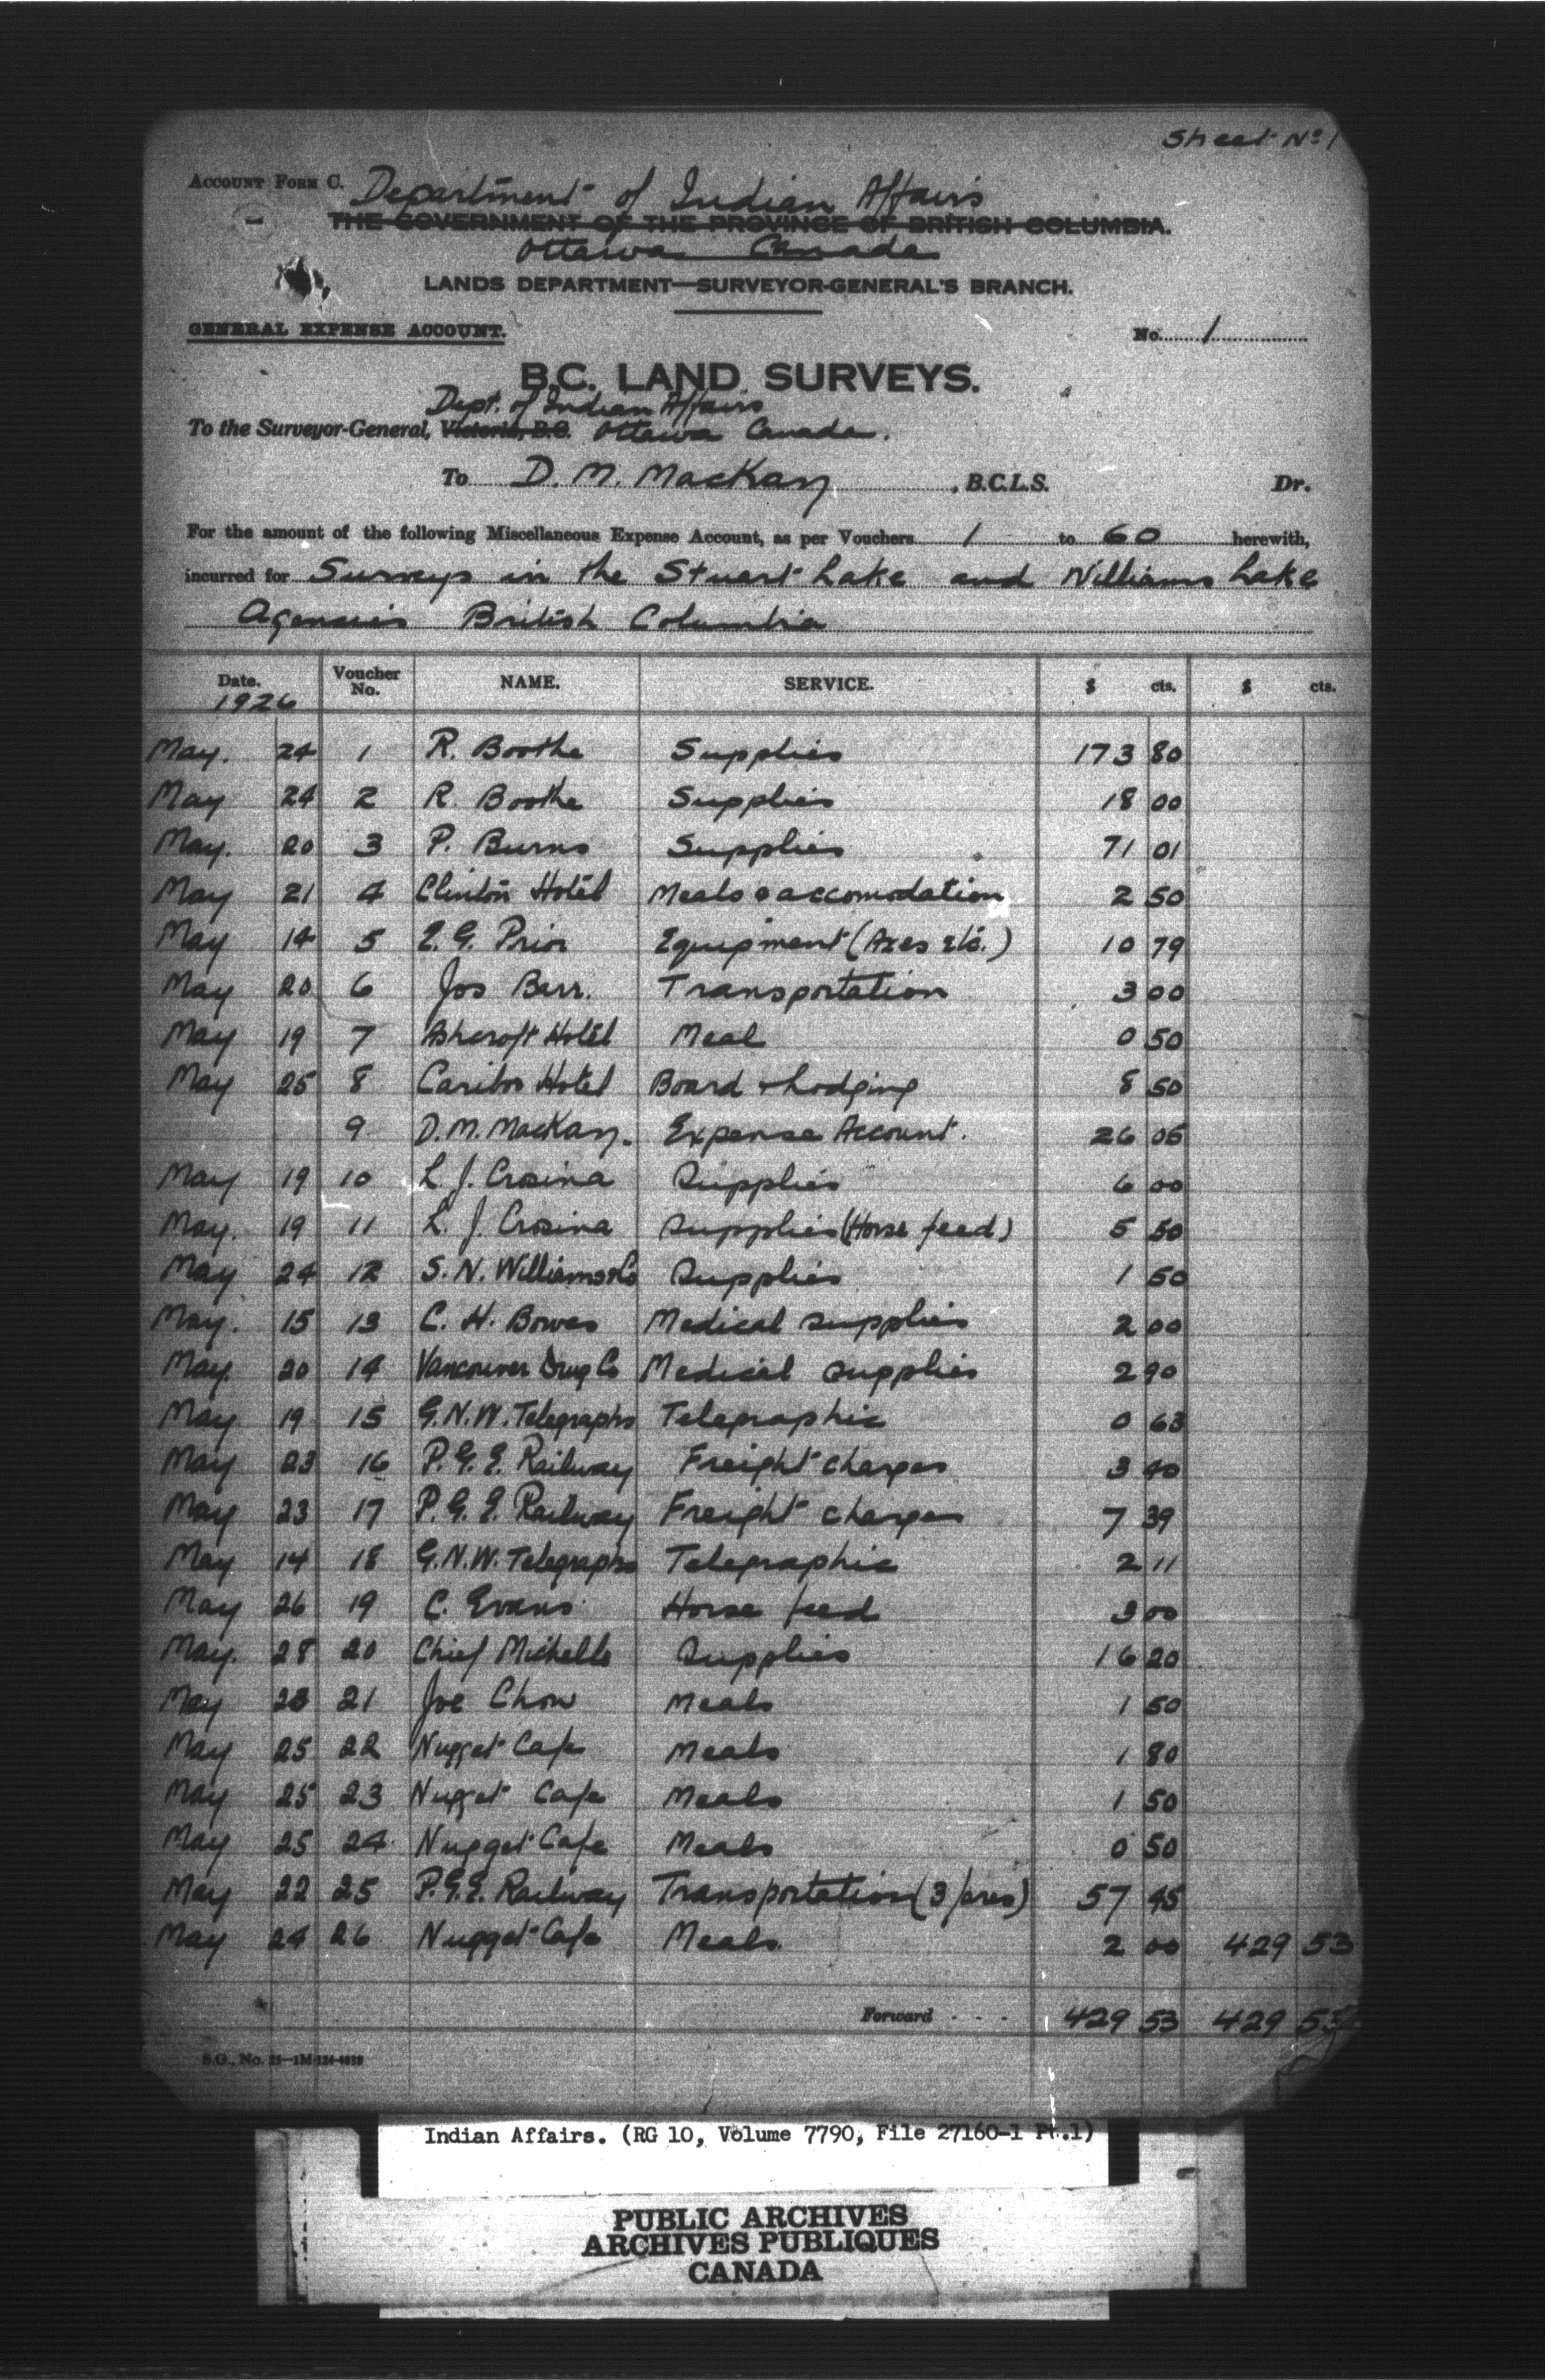 Sheet No 1
Account Form C. Department of Indian Affairs
THE GOVERNMENT OF THE PROVINCE OF BRITISH COLUMBIA.
Ottawa Canada
LANDS DEPARTMENT—SURVEYOR-GENERAL'S BRANCH.
GENERAL EXPENSE ACCOUNT. No. 1
B.C. LAND SURVEYS.
Dept. of Indian Affairs
To the Surveyor-General, Victoria, B.C. Ottawa Canada.
To D. M. MacKay, B.C.L.S. Dr.
For the amount of the following Miscellaneous Expense Account, as per Vouchers 1 to 60 herewith,
incurred for Surveys in the Stuart Lake and Williams Lake
Agencies British Columbia
Date. Voucher No. NAME. SERVICE. $ cts. $ cts.
1926
May. 24 1 R. Boothe Supplies 173 80
May 24 2 R. Boothe Supplies 18 00
May. 20 3 P. Burns Supplies 71 01
May 21 4 Clinton Hotel Meals & accomodation 2 50
May 14 5 E. G. Prior Equipment (Axes etc.) 10 79
May 20 6 Jos Barr. Transportation 3 00
May 19 7 Ashcroft Hotel Meal 0 50
May 25 8 Cariboo Hotel Board & Lodging 8 50
9 D. M. MacKay. Expense Account. 26 05
May 19 10 L. J. Crosina Supplies 6 00
May. 19 11 L. J. Crosina Supplies (Horse feed) 5 50
May 24 12 S. N. Williams & Co Supplies 1 50
May. 15 13 C. H. Bowes Medical Supplies 2 00
May. 20 14 Vancouver Drug Co Medical Supplies 2 90
May 19 15 G.N.W. Telegraphs Telegraphic 0 63
May 23 16 P.G.E. Railway Freight charges 3 40
May 23 17 P.G.E. Railway Freight charges 7 39
May 14 18 G.N.W. Telegraphs Telegraphic 2 11
May 26 19 C. Evans Horse feed 3 00
May. 28 20 Chief Michelle Supplies 16 20
May 21 Joe Chow Meals 1 50
May 25 22 Nugget Cafe Meals 1 80
May 25 23 Nugget Cafe Meals 1 50
May 25 24 Nugget Cafe Meals 0 50
May 22 25 P.G.E. Railway Transportation (3 fares) 57 45
May 24 26 Nugget Cafe Meals. 2 00 429 53
Forward - - - 429 53 429 53
S.G., No. 25—1M-124-
Indian Affairs. (RG 10, Volume 7790, File 27160-1 Pt.1)
PUBLIC ARCHIVES
ARCHIVES PUBLIQUES
CANADA